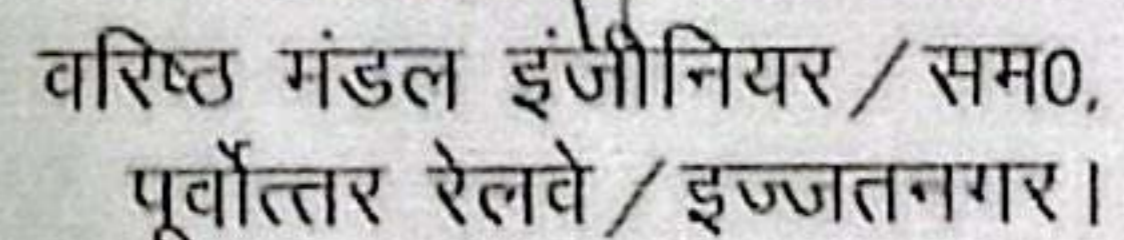 वरिष्ठ मंडल इंजीनियर / सम०,
पूर्वोत्तर रेलवे / इज्जतनगर।